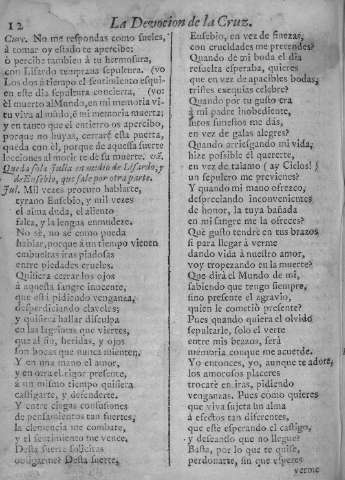 12
La Devocion de la Cruz.
Curc. No me respondas como sueles,
à tomar oy estado te apercibe:
ò percibe tambien à tu hermosura,
con Lisardo temprana sepultura. (vo
Los dos à tiempo el sentimiento esqui-
en este dia sepultura concierta, (vo:
èl muerto al Mundo, en mi memoria vi-
tu viva al mundo, è mi memoria muerta;
y en tanto que el entierro os apercibo,
porque no huyas, cerrarè esta puerta,
queda con èl, porque de aquesta suerte
lecciones al morir te dè su muerte. vã.
Queda sola Julia en medio de Lisardo, y
de Eusebio, que sale por otra parte.
Jul. Mil veces procuro hablarte,
tyrano Eusebio, y mil veces
el alma duda, el aliento
falca, y la lengua enmudece.
No sè, no sè como pueda
hablar, porque à un tiempo vienen
embueltas iras piadosas
entre piedades crueles.
Quisiera cerrar los ojos
à aquesta sangre inocente,
que està pidiendo venganza,
desperdiciando claveles:
y quisiera hallar disculpa
en las lagrimas que viertes,
que al fin, heridas, y ojos
son bocas que nunca mienten.
Y en una mano el amor,
y en otra el rigor presente,
à un mismo tiempo quisiera
castigarte, y defenderte.
Y entre ciegas confusiones
de pensamientos tan fuertes,
la clemencia me combate,
y el sentimiento me vence.
Desta suerte solicitas
obligarme? Desta suerte,
Eusebio, en vez de finezas,
con crueldades me pretendes?
Quando de mi boda el dia
resuelta esperaba, quieres
que en vez de apacibles bodas,
tristes exequias celebre?
Quando por tu gusto era
à mi padre inobediente,
lutos funestos me dàs,
en vez de galas alegres?
Quando arriesgando mi vida,
hice posible el quererte,
en vez de talamo (ay Cielos!)
un sepulcro me previenes?
Y quando mi mano ofrezco,
despreciando inconvenientes
de honor, la tuya bañada
en mi sangre me la ofreces?
Què gusto tendrè en tus brazos
si para llegar à verme
dando vida à nuestro amor,
voy tropezando en la muerte?
Que dirà el Mundo de mi,
sabiendo que tengo siempre,
sino presente el agravio,
quien le cometiò presente?
Pues quando quiera el olvido
sepultarle, solo el verte
entre mis brazos, serà
memoria conque me acuerde.
Yo entonces, yo, aunque te adore,
los amorosos placeres
trocarè en iras, pidiendo
venganzas. Pues como quieres
que viva sujeta un alma
à efectos tan diferentes,
que estè esperando el castigo,
y deseando que no llegue?
Basta, por lo que te quise,
perdonarte, sin que esperes
verme